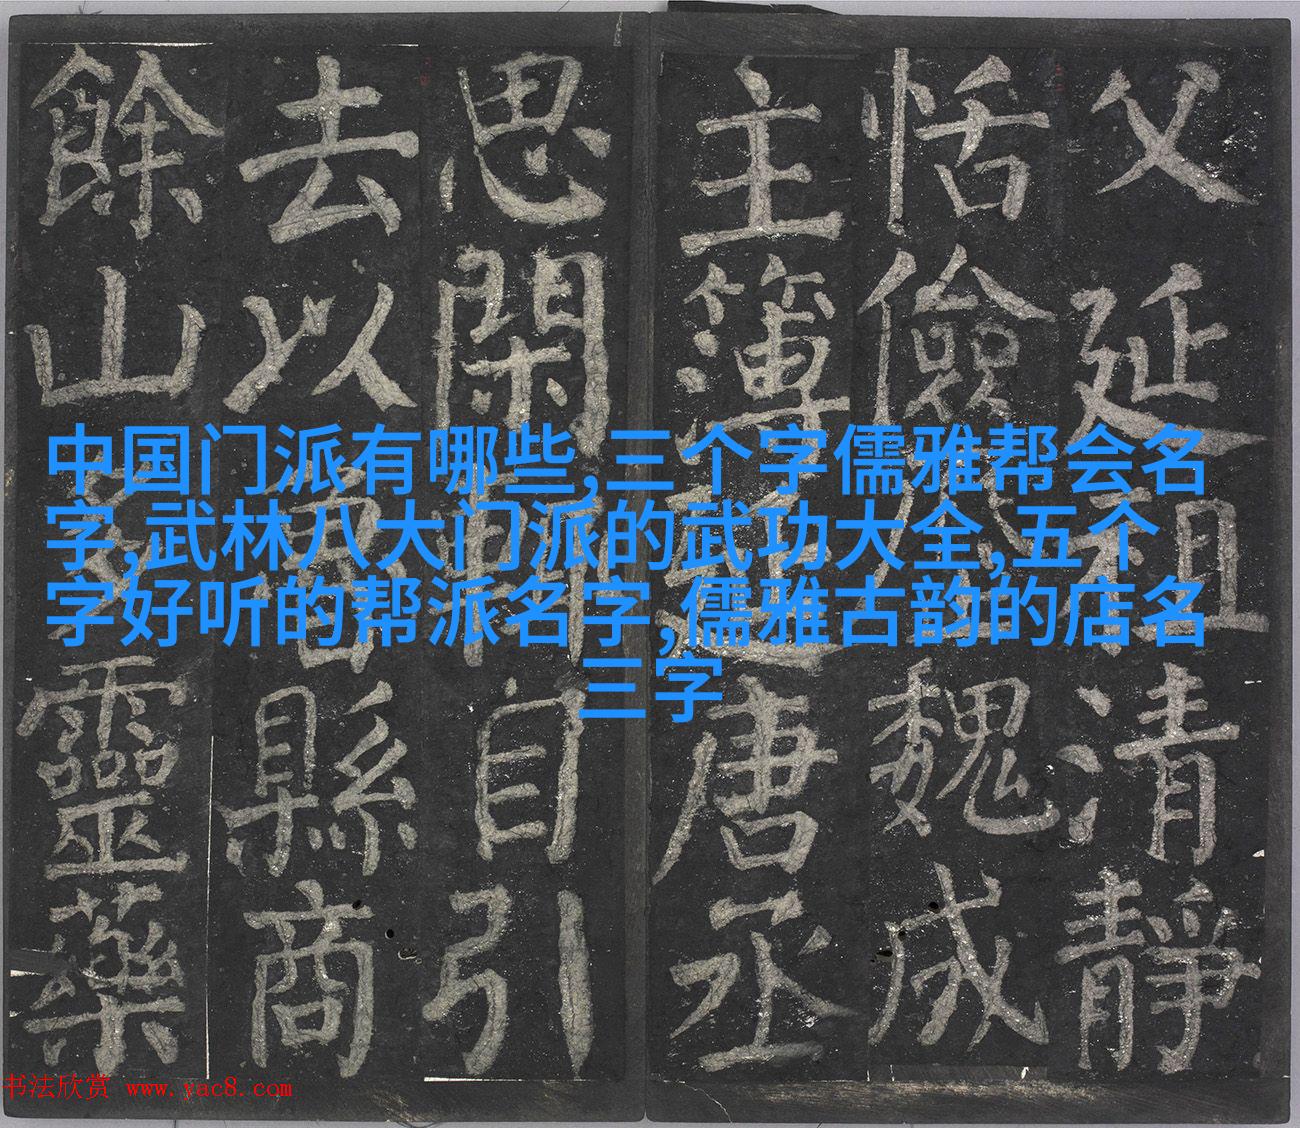 父延祖清靜
恬儉魏成
主簿延唐丞
思閑輒自引
去以魯縣商
餘山多靈藥
中国门派有哪些,三个字儒雅帮会名
字,武林八大门派的武功大全,五个
字好听的帮派名字,儒雅古韵的店名
三字
书法欣赏 www.yac8.com